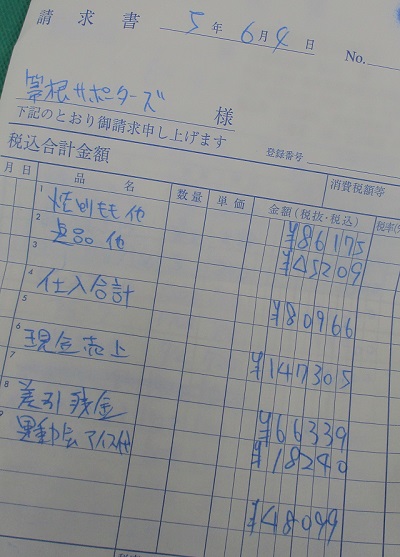 請求書 5年6月4日
No.
箒根サポーターズ 様
下記のとおり御請求申し上げます
登録番号
税込合計金額 消費税額等
月 日 品名 数量 単価 金額(税抜・税込) 税率(%
1 もも他 ¥86175
2 品他 ¥△5209
3
4 仕入合計 ¥80966
5
6 現金売上 ¥147305
7
8 差引残金 ¥66339
9 運動会アイス代 ¥18240
¥48099